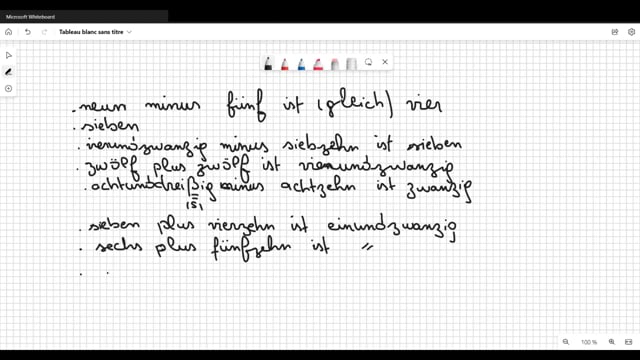 Microsoft Whiteboard
Tableau blanc sans titre
. neun minus fünf ist (gleich) vier
. sieben
. vierundzwanzig minus siebzehn ist sieben
. zwölf plus zwölf ist vierundzwanzig
. achtunddreißig minus achtzehn ist zwanzig
. sieben plus vierzehn ist einundzwanzig
. sechs plus fünfzehn ist "
.
100 %